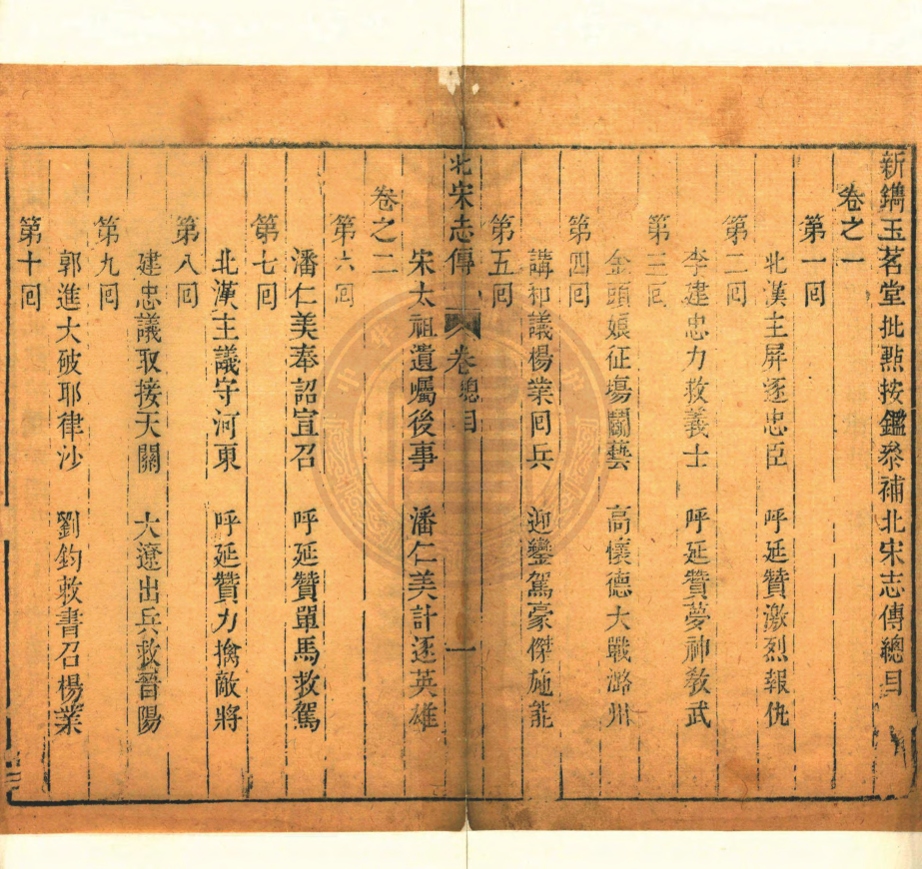 新鐫玉茗堂批㸃按鑑參補北宋志傳總目
卷之一
第一囘
北漢主屏逐忠臣　呼延贊激烈報仇
第二囘
李建忠力救義士　呼延贊夢神教武
第三囘
金頭娘征塲鬬藝　高懷德大戰潞州
第四囘
講和議楊業囘兵　迎鑾駕豪傑施能
第五囘
宋太祖遺囑後事　潘仁美計逐英雄
北宋志傳　卷總目　一
卷之二
第六囘
潘仁美奉詔宣召　呼延贊單馬救駕
第七囘
北漢主議守河東　呼延贊力擒敵將
第八囘
建忠議取接天關　大遼出兵救晉陽
第九囘
郭進大破耶律沙　劉鈞敕書召楊業
第十囘